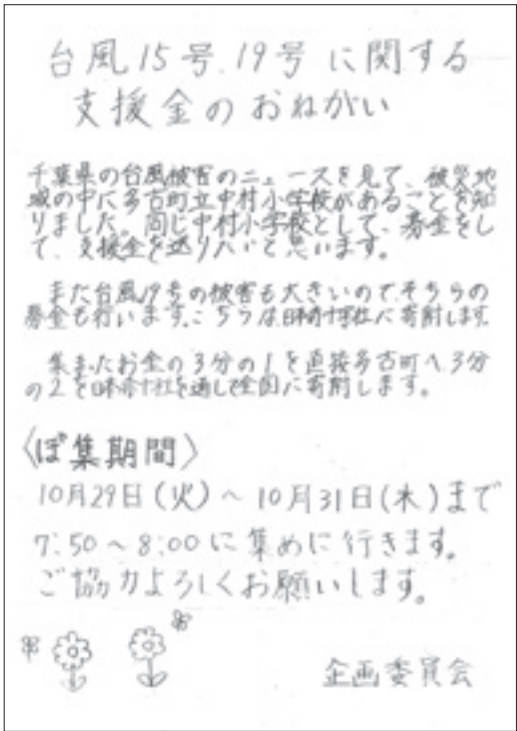 台風15号、19号に関する
支援金のおねがい
千葉県の台風被害のニュースを見て、被災地
域の中に多古町立中村小学校があることを知
りました。同じ中村小学校として、募金をし
て、支援金を送りたいと思います。
また台風19号の被害も大きいのでそちらの
募金も行います。こちらは日本赤十字社に寄附します。
集まったお金の3分の1を直接多古町へ、3分
の2を日本赤十字社を通して全国に寄附します。
〈ぼ集期間〉
10月29日(火)～10月31日(木)まで
7:50～8:00に集めに行きます。
ご協力よろしくお願いします。
企画委員会